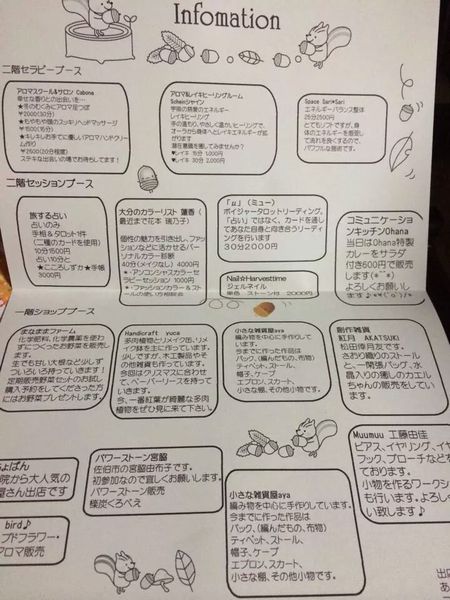 Infomation
二階セラピーブース
アロマスクール&サロン Cabona
幸せな香りとの出会いを…
★冬のむくみにアロマ足つぼ
¥2000(30分)
★もやもや頭のスッキリヘッドマッサージ
¥1500(15分)
★キレキレお手てに優しいアロマハンドクリーム作り
¥2500(20分程度)
ステキな出会いの場でお待ちしてます!
アロマ&レイキヒーリングルーム
Scheinシャイン
宇宙の慈愛のエネルギー
レイキヒーリング
手の温もり、やさしく温か、ヒーリングで、
オーラから身体へとレイキエネルギーが拡がります。
潜在意識を癒してみませんか?
♥レイキ 15分 1,000円
♥レイキ 30分 2,000円
Space Sari*Sari
エネルギーバランス整体
25分2500円
とてもソフトですが、身体のエネルギーを感知して流れを良くするので、パワフルな施術です。
二階セッションブース
旅する占い
占いのみ
手相&タロット1件
(二種のカードを使用)
10分1500円
占い10分と
★こころしずか★手帳
3000円
大分のカラーリスト 蓮香(最近まで花本 瑞乃子)
個性の魅力を引き出し、ファッションなどに活かせるパーソナルカラー診断
40分(メイクなし) 4000円
★・アンコンシャスカラーセラピーセッション 1000円
★・ファッションカラー&ストールの使い方相談会
「μ」(ミュー)
ボイジャータロットリーディング。
「占い」ではなく、カードを通してあなた自身と向き合うリーディングを行います
30分2000円
Nail☆Harvesttime
ジェルネイル
単色・ストーン付 2000円
コミュニケーションキッチンOhana
当日はOhana特製カレーをサラダ付き600円で販売します(*^^*)
よろしくお願いします♪
一階ショップブース
まなままファーム
化学肥料、化学農薬を使わずにつくったお野菜を販売します。
生でも甘い大根など少しずついろいろ持っていきます!
定期販売野菜セットのお試し購入予約をしてくださった方にはお野菜プレゼントします。
Handicraft yuca
多肉植物とリメイク缶、リメイク鉢を主に作っています。
少しですが、木工製品やその他雑貨も作っています。
今回はクリスマスに合わせて、ペーパーリースを持っていきます。
今、一番紅葉が綺麗な多肉植物をぜひ見に来て下さい。
小さな雑貨屋aya
編み物を中心に手作りしています。
今までに作った作品は
バック、(編んだもの、布物)
ティペット、ストール、
帽子、ケープ
エプロン、スカート、
小さな棚、その他小物です。
創作雑貨
紅月 AKATSUKI
松田倖月友です。
さおり織りのストールと、一閑張バッグ、水晶入りの猫しカエルちゃんの販売をしています。
ょぱん
院から大人気の
屋さん出店です
パワーストーン宮脇
佐伯市の宮脇由布子です。
初参加なので宜しくお願いします。
パワーストーン販売
榛炭くろべえ
bird♪
ブドフラワー・
アロマ販売
小さな雑貨屋aya
編み物を中心に手作りしています。
今までに作った作品は
バック、(編んだもの、布物)
ティペット、ストール、
帽子、ケープ
エプロン、スカート、
小さな棚、その他小物です。
Muumuu 工藤由佳
ピアス、イヤリング、イヤ
フック、ブローチなどを
ております。
小物を作るワークシ
も行います。よろし
い致します♪
出店
あ